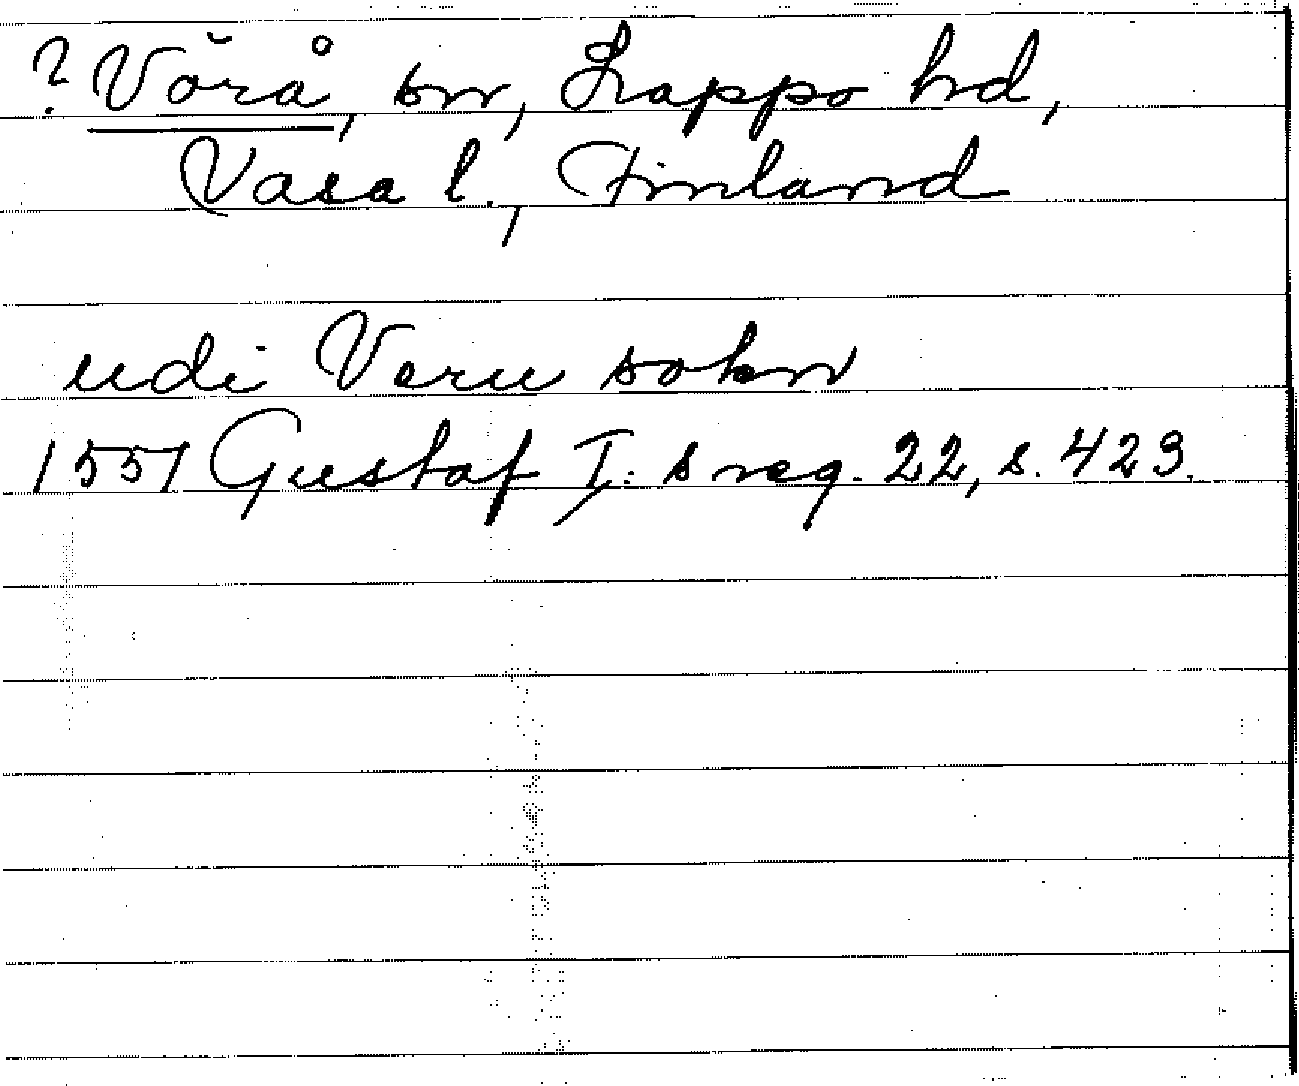 ? Vörå, sn, Lappo hd,
Vasa l., Finland
udi Veru sokn
1551 Gustaf I:s reg. 22, s. 423.